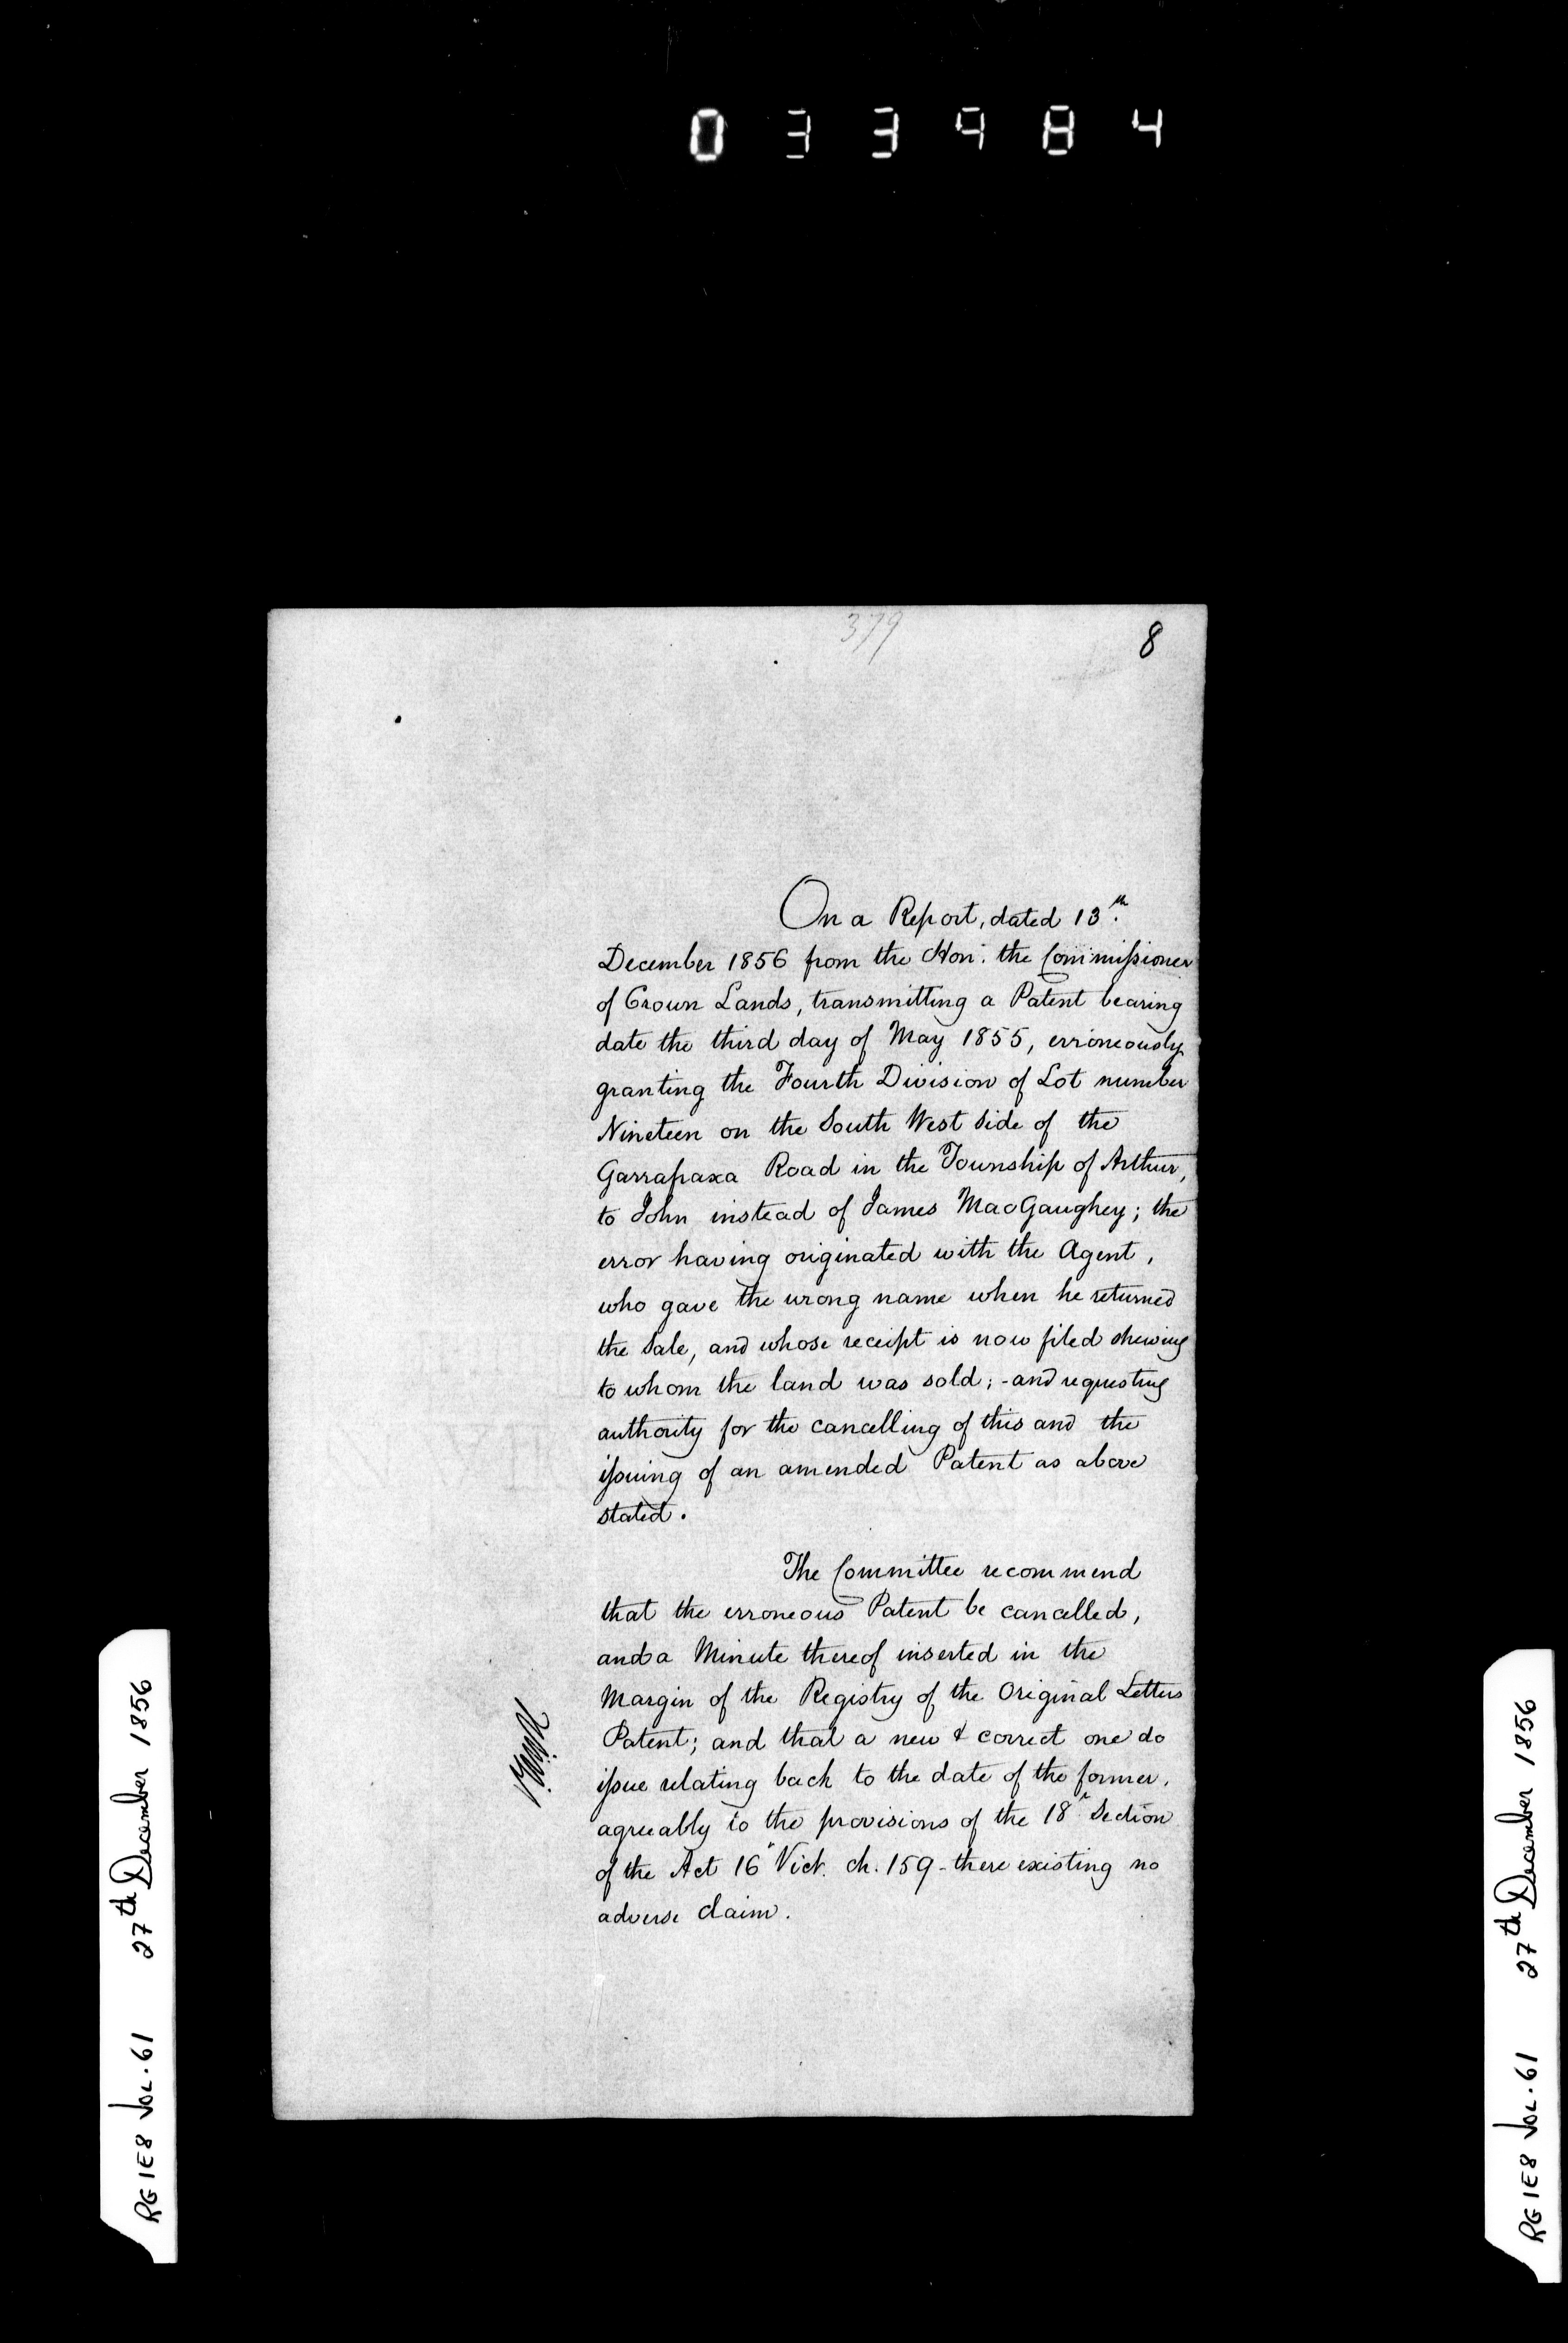 033984
379
8
On a Report, dated 13th.
December 1856 from the Hon: the Commissioner
of Crown Lands, transmitting a Patent bearing
date the third day of May 1855, erroneously
granting the Fourth Division of Lot number
Nineteen on the South West side of the
Garrafraxa Road in the Township of Arthur,
to John instead of James MacGaughey; the
error having originated with the Agent,
who gave the wrong name when he returned
the Sale, and whose receipt is now filed shewing
to whom the land was sold; - and requesting
authority for the cancelling of this and the
issuing of an amended Patent as above
stated.
The Committee recommend
that the erroneous Patent be cancelled,
and a Minute thereof inserted in the
Margin of the Registry of the Original Letters
Patent; and that a new & correct one do
issue relating back to the date of the former,
agreeably to the provisions of the 18th Section
of the Act 16" Vict. ch. 159 - there existing no
adverse claim.
RG 1E8 VOL. 61 27th December 1856
RG 1E8 VOL. 61 27th December 1856